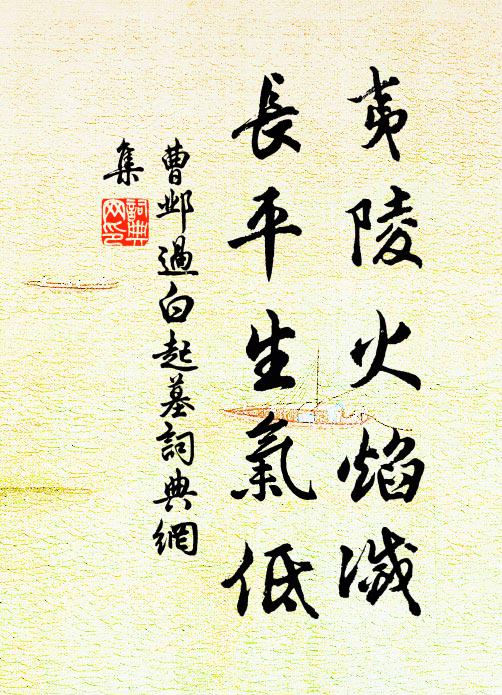 夷陵火焰滅
長平生氣低
曹邺過白起墓詞典網
集
詞典
网印